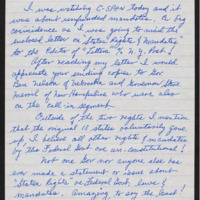 I was watching C-SPAN today and it
was about unfunded mandates. A big
coincidence as I was going to mail the
enclosed letter on States Rights & Mandates
to the Editor of "Letters" to N.Y. Post.
After reading my letter I would
appreciate your sending copies to Gov.
Ben Nelson of Nebraska and Governor Steve
Merrill of New Hampshire who were also
on the call in segment.
Outside of the two rights I mention
that the original 13 states voluntarily gave
up, I believe all other rights/mandates
by the Federal Govt are un-constitutional!
Not one Gov nor anyone else has
ever made a statement or issue about
States Rights vs Federal Govt laws &
mandates. Amazing to say the least!